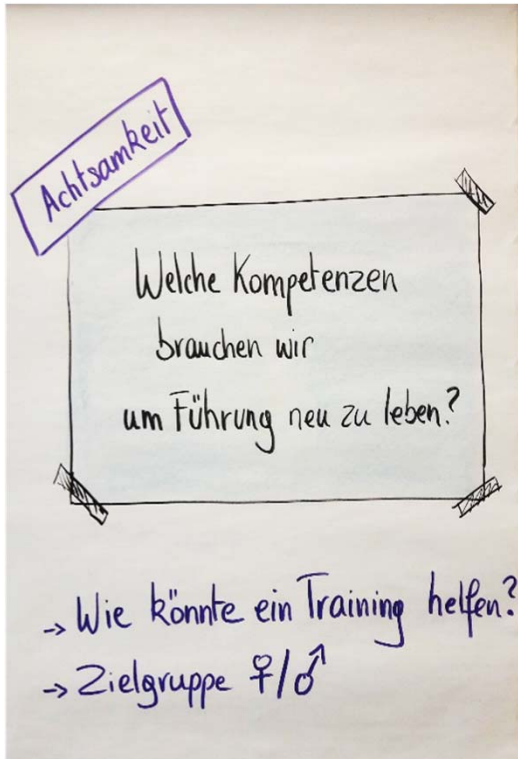 Achtsamkeit
Welche Kompetenzen
brauchen wir
um Führung neu zu leben?
→ Wie könnte ein Training helfen?
→ Zielgruppe ♀/♂